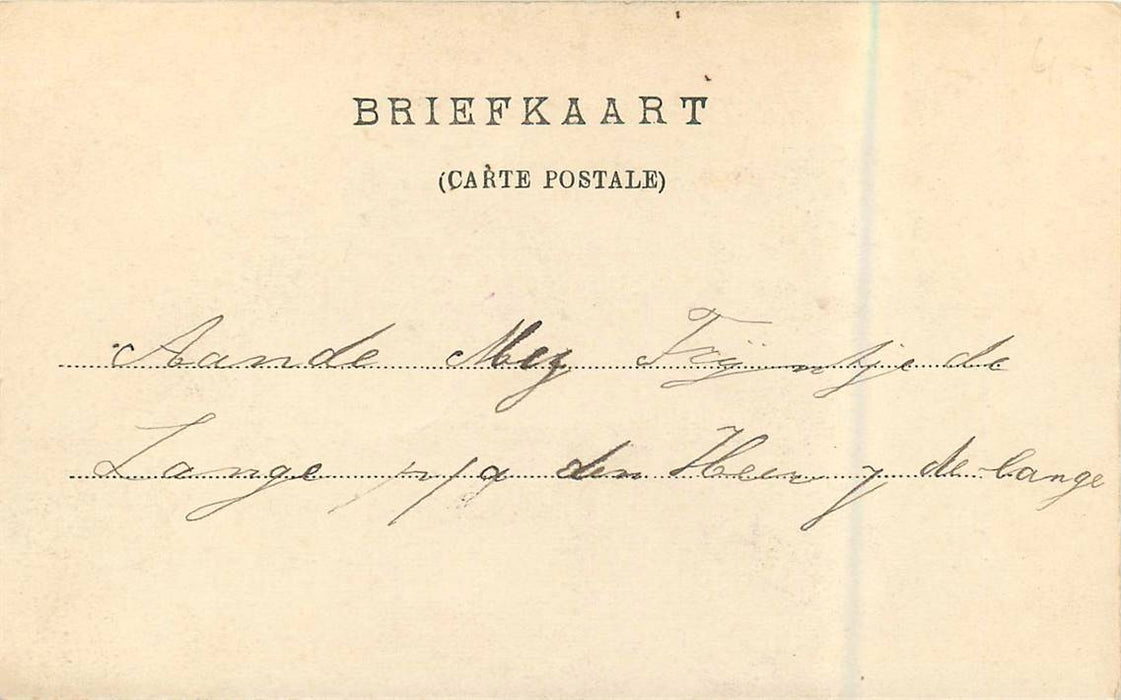 BRIEFKAART
(CARTE POSTALE)
Aande Mej Trijntje de
Lange p/a den Heer J de Lange